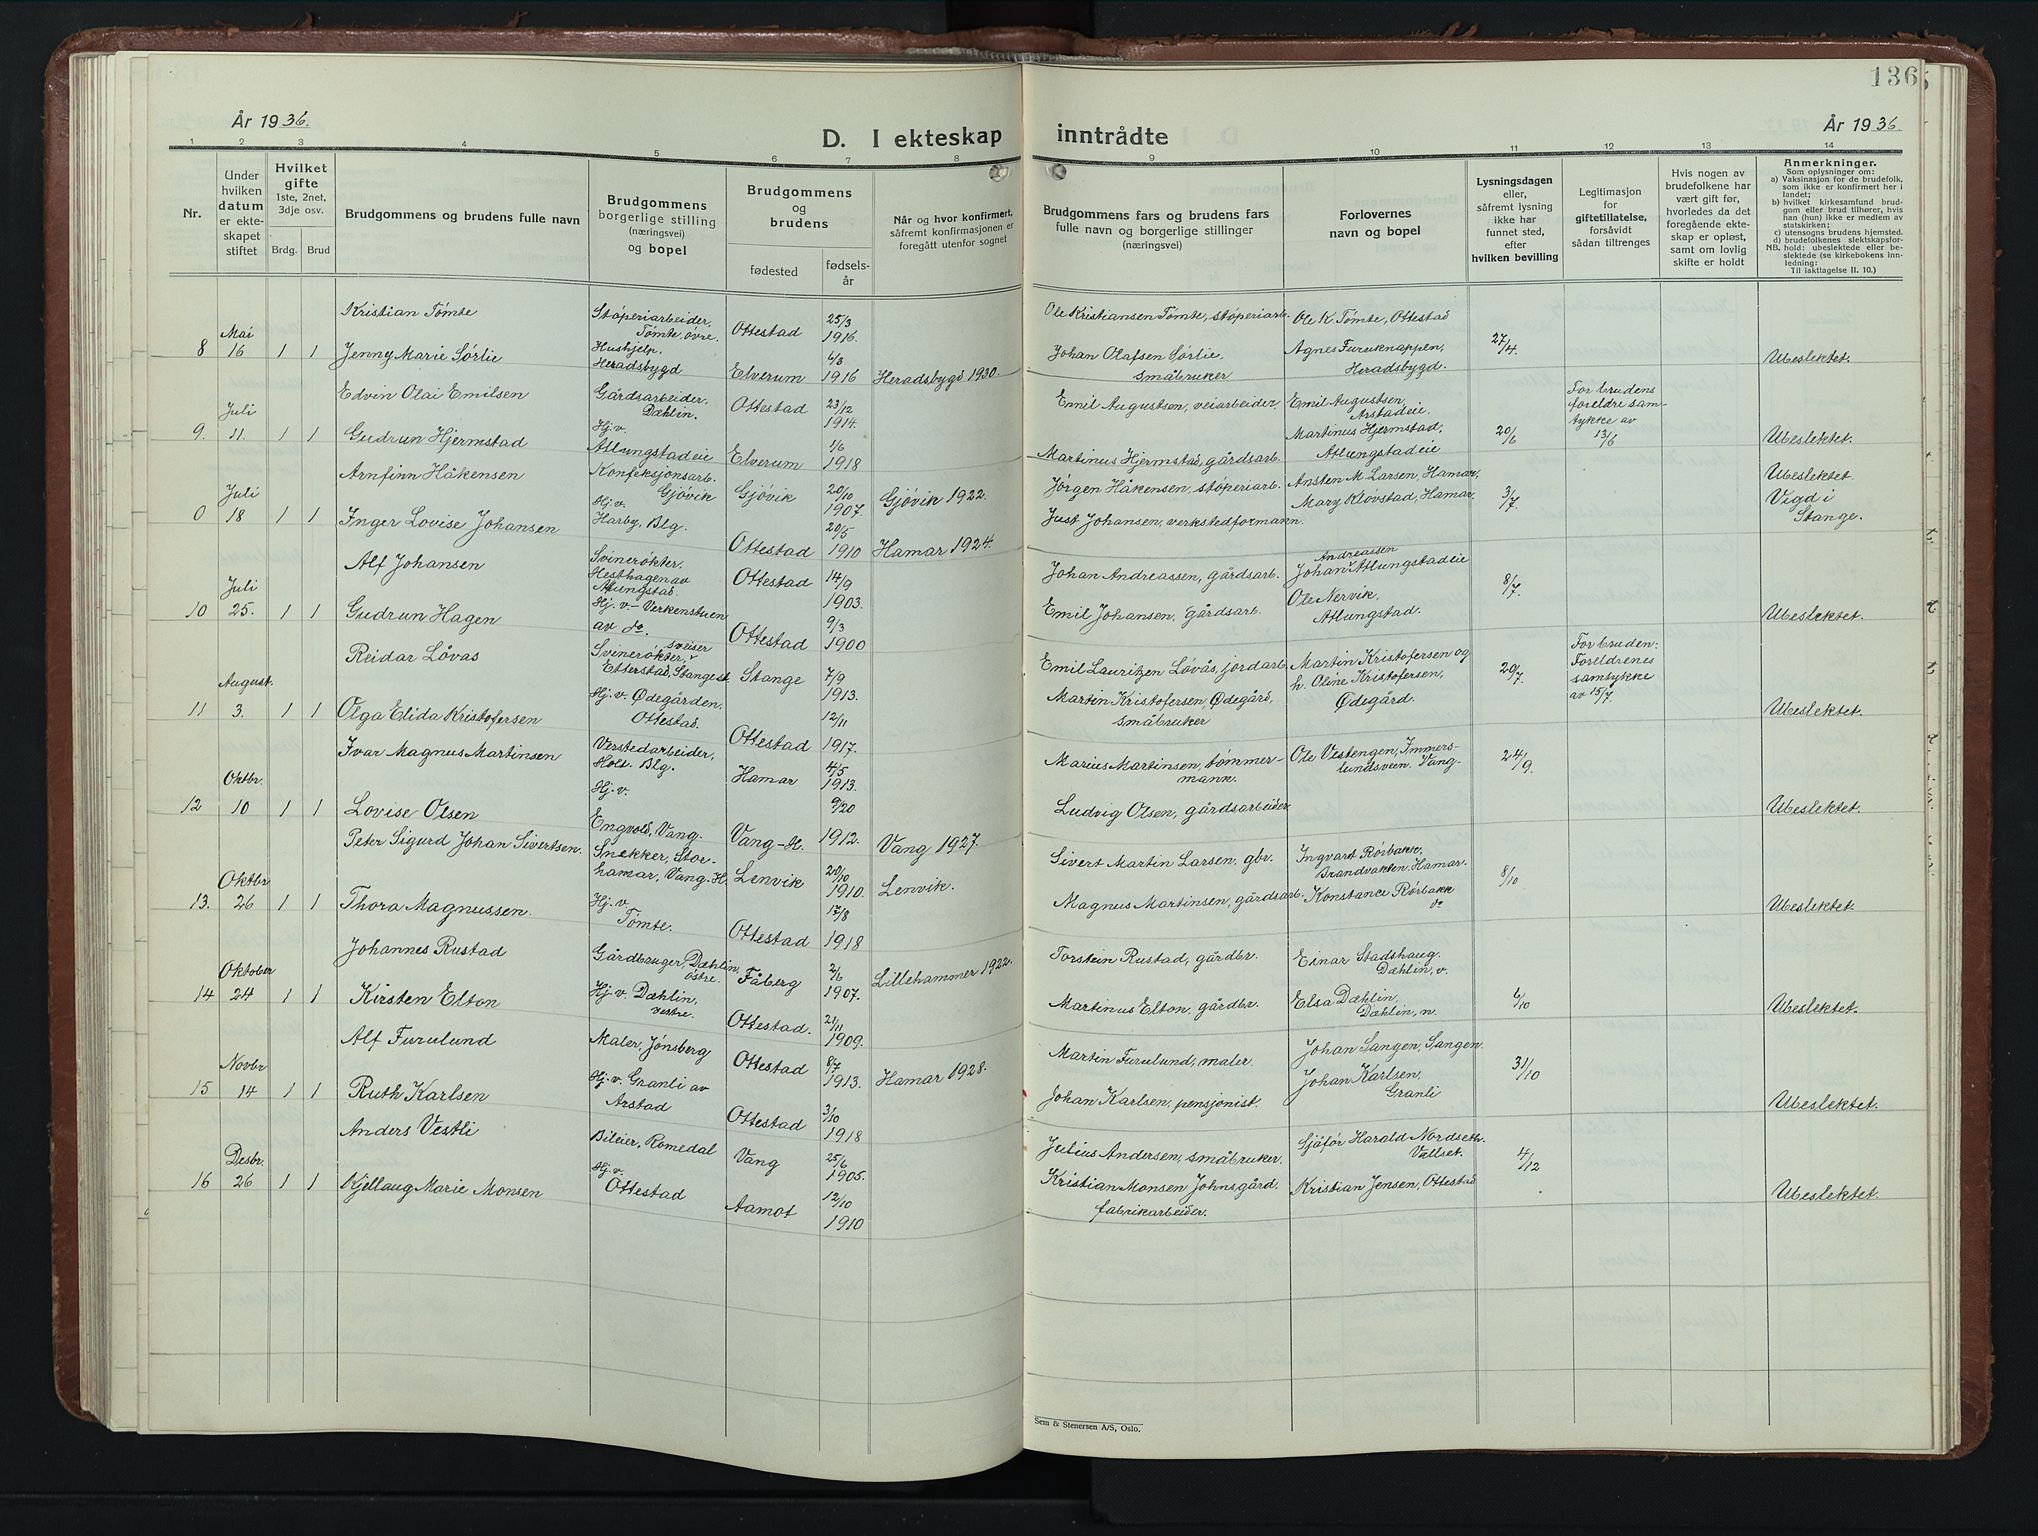 136
År 1936.
D. I ekteskap
inntrådte
År 1936.
1 2 3 4 5 6 7 8 9 10 11 12 13 14
Nr.
Under hvilken datum er ekteskapet stiftet
Hvilket gifte
1ste, 2net, 3dje osv.
Brdg. Brud
Brudgommens og brudens fulle navn
Brudgommens borgerlige stilling (næringsvei) og bopel
Brudgommens og brudens
fødested
fødselsår
Når og hvor konfirmert, såfremt konfirmasjonen er foregått utenfor sognet
Brudgommens fars og brudens fars fulle navn og borgerlige stillinger (næringsvei)
Forlovernes navn og bopel
Lysningsdagen eller, såfremt lysning ikke har funnet sted, efter hvilken bevilling
Legitimasjon for giftetillatelse, forsåvidt sådan tiltrenges
Hvis nogen av brudefolkene har vært gift før, hvorledes da det foregående ekteskap er opløst, samt om lovlig skifte er holdt
Anmerkninger.
Som oplysninger om:
a) Vaksinasjon for de brudefolk, som ikke er konfirmert her i landet;
b) hvilket kirkesamfund brudgom eller brud tilhører, hvis han (hun) ikke er medlem av statskirken;
c) utensogns brudens hjemsted.
d) brudefolkenes slektskapsforhold: ubeslektede eller beslektede (se kirkebokens innledning:
NB.
Til iakttagelse II. 10.)
8 Mai 16 1 1
Kristian Tømte
Støperiarbeider, Tømte, øvre.
Ottestad 25/3 1916.
Ole Kristiansen Tømte, støperiarb.
Ole K. Tømte, Ottestad
27/4.
Jenny Marie Sørlie
Hushjelp, Heradsbygd
Elverum 6/3 1916
Heradsbygd 1930.
Johan Olafsen Sørlie, småbruker
Agnes Furuknappen, Heradsbygd.
Ubeslektet.
9. Juli 11. 1 1
Edvin Olai Emilsen
Gårdsarbeider, Dæhlin.
Ottestad 23/12 1914.
Emil Augustsen, veiarbeider,
Emil Augustsen, Arstadeie.
20/6
For brudens foreldre samtykke av 13/6
Gudrun Hjermstad
Hj.v. Atlungstadeie
Elverum 1/6 1918
Martinus Hjermstad, gårdsarb.
Martinus Hjermstad, Atlungstadeie
Ubeslektet.
0 Juli 18 1 1
Arnfinn Håkensen
Konfeksjonsarb. Gjøvik
Gjøvik 20/10 1907.
Gjøvik 1922.
Jørgen Håkensen, støperiarb.
Ansten M. Larsen, Hamar,
3/7
Inger Lovise Johansen
Hj.v. Harby, Blg.
Ottestad 20/5 1910
Hamar 1924.
Just Johansen, verkstedformann.
Mary Klovstad, Hamar.
Ubeslektet.
Vigd i Stange.
10 Juli 25. 1 1
Alf Johansen
Svinerøkter, Hesthagen av Atlungstad.
Ottestad 14/9 1903.
Johan Andreassen, gårdsarb.
Johan Andreassen Atlungstadeie
8/7
Gudrun Hagen
Hj. v - Verkenstuen av do.
Ottestad 9/3 1900
Emil Johansen, gårdsarb.
Ole Nervik, Atlungstad.
Ubeslektet.
11 August 3. 1 1
Reidar Løvås
Svinerøkter, sveiser Etterstad, Stange st.
Stange 7/9 1913.
Emil Lauritzen Løvås, jordarb.
Martin Kristofersen og h. Oline Kristofersen, Ødegård.
20/7
For bruden: Foreldrenes samtykke av 15/7.
Olga Elida Kristofersen
Hj. v. Ødegården, Ottestad.
Ottestad 12/11 1917.
Martin Kristofersen, Ødegård, småbruker
Ubeslektet.
12 Oktbr. 10 1 1
Ivar Magnus Martinsen
Verstedarbeider, Holt. Blg.
Hamar 4/5 1913.
Marius Martinsen, tømmermann.
Ole Vestengen, Immerslundsveen. Vang
24/9.
Lovise Olsen
Hj.v. Engvold, Vang.
Vang-H. 9/20 1912.
Vang 1927.
Ludvig Olsen, gårdsarbeider
Ubeslektet.
13. Oktbr 26 1 1
Peter Sigurd Johan Sivertsen.
Snekker, Storhamar, Vang. H.
Lenvik 20/10 1910.
Lenvik.
Sivert Martin Larsen, gbr.
Ingvart Rørbakk, Brandvakten, Hamar.
8/10
Thora Magnussen.
Hj.v. Tømte.
Ottestad 17/8 1918
Magnus Martinsen, gårdsarb.
Konstance Rørbakk do
Ubeslektet.
14 Oktober 24 1 1
Johannes Rustad
Gårdbruger, Dæhlin, østre.
Fåberg 2/6 1907.
Lillehammer 1922.
Torstein Rustad, gårdbr.
Einar Stadshaug, Dæhlin, v.
6/10
Kirsten Elton
Hj.v. Dæhlin, vestre.
Ottestad. 21/11 1909.
Martinus Elton, gårdbr.
Elsa Dæhlin, Dæhlin, n.
Ubeslektet.
15 Novbr 14 1 1
Alf Furulund
Maler, Jønsberg
Ottestad 8/7 1913.
Hamar 1928.
Martin Furulund, maler.
Johan Sangen, Sangen
31/10
Ruth Karlsen
Hj.v. Granli av Arstad
Ottestad 3/10 1918
Johan Karlsen, pensjonist.
Johan Karlsen, Granli
Ubeslektet.
16 Desbr. 26 1 1
Anders Vestli
Bileier, Romedal
Vang 25/6 1905.
Julius Andersen, småbruker.
Sjåfør Harald Nordseth, Vallset.
4/12
Kjellaug Marie Monsen
Hj.v. Ottestad
Aamot 12/10 1910
Kristian Monsen Johnsgård, fabrikarbeider.
Kristian Jensen, Ottestad
Ubeslektet.
Sem & Stenersen A/S, Oslo.